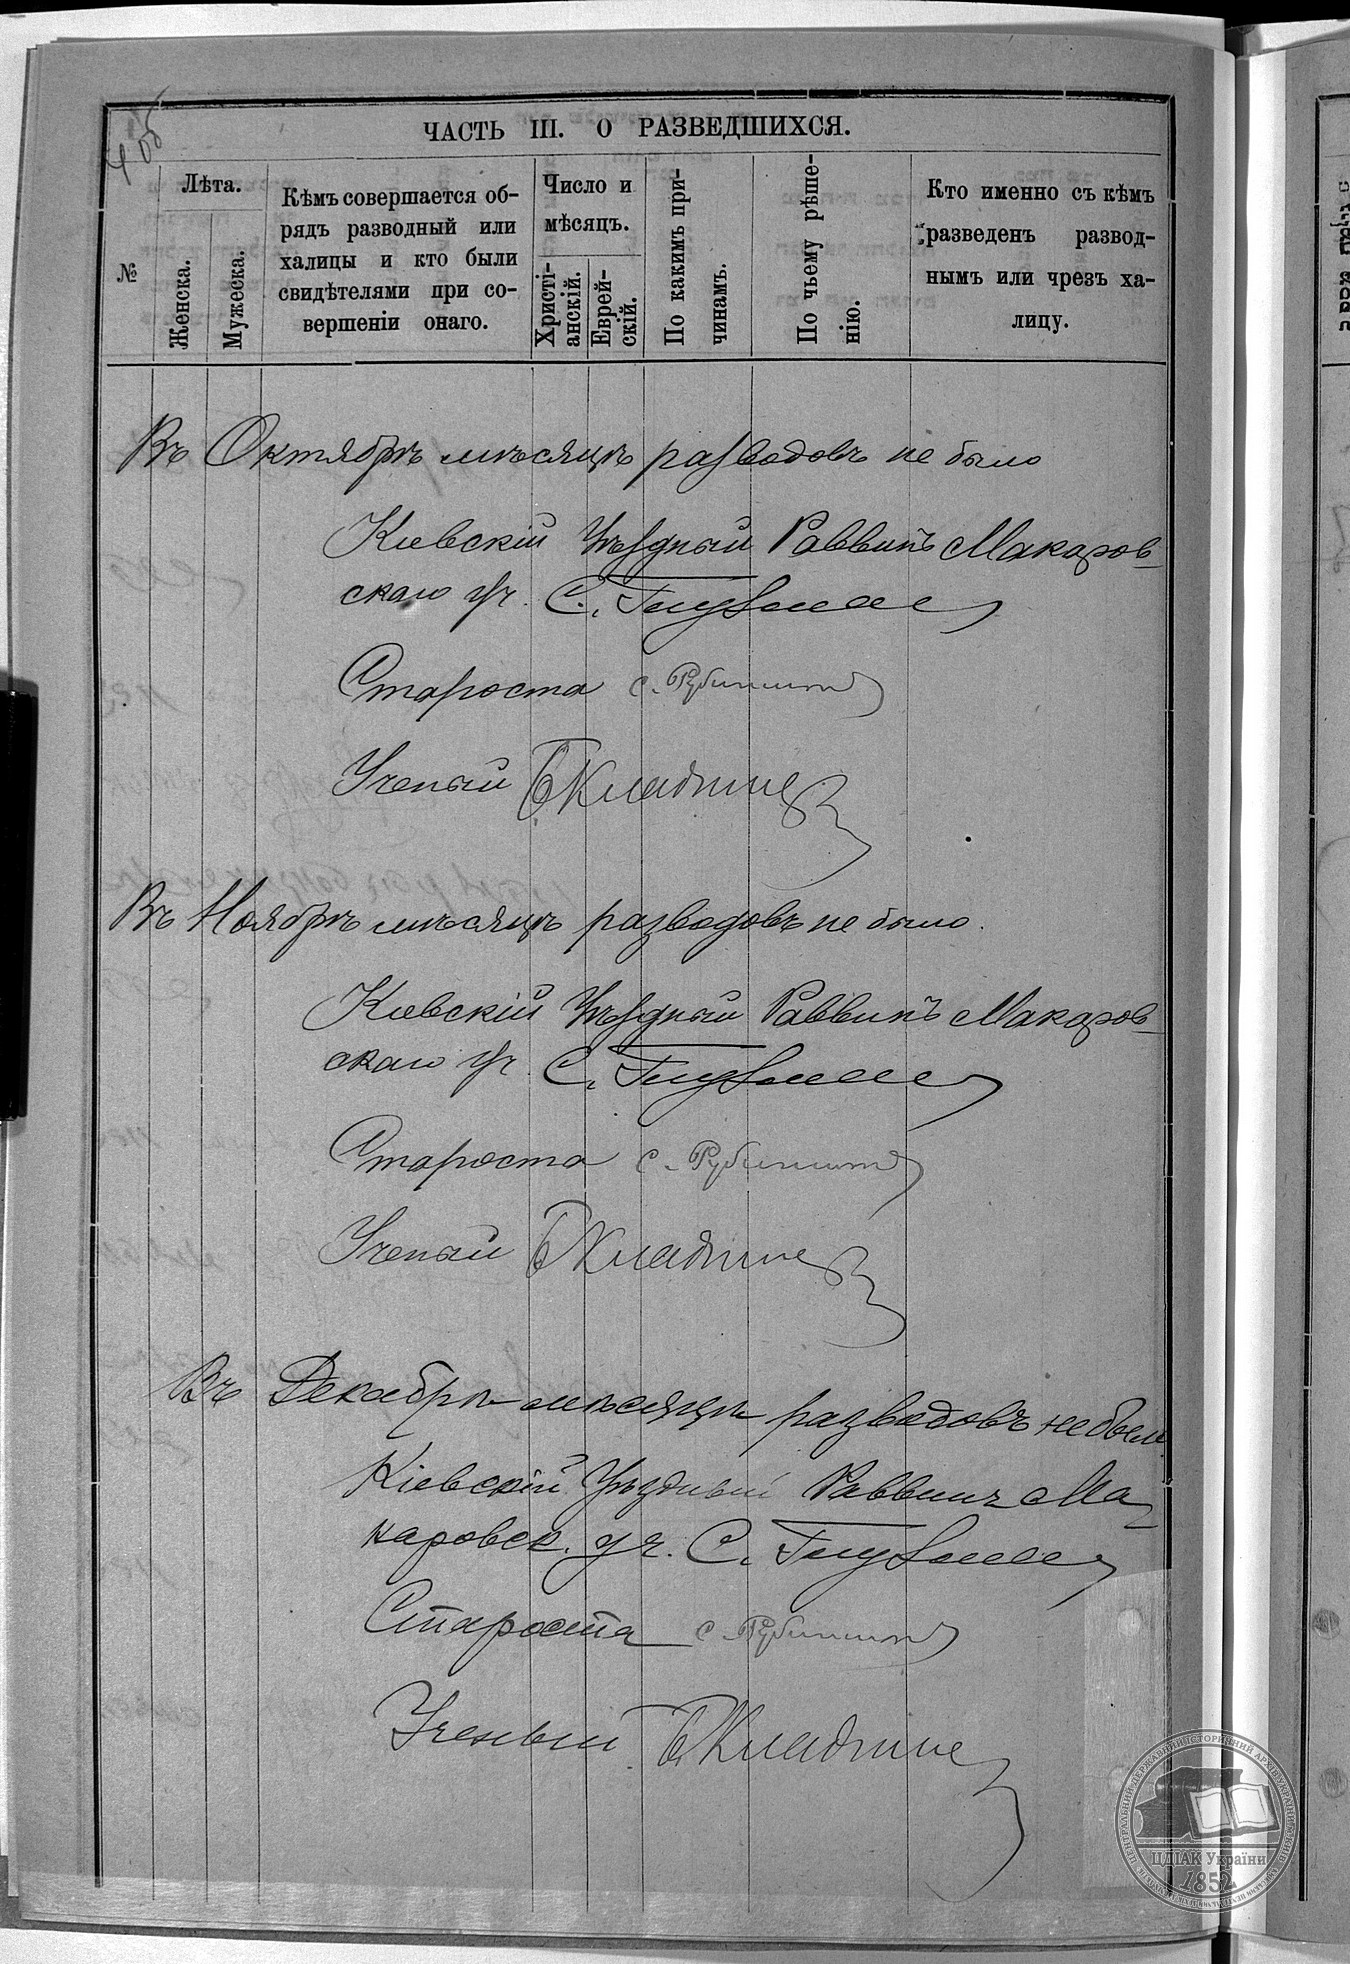 ЧАСТЬ III. О РАЗВЕДШИХСЯ.
№
Лѣта.
Женска.
Мужеска.
Кѣмъ совершается об-
рядъ разводный или
халицы и кто были
свидѣтелями при со-
вершеніи онаго.
Число и
мѣсяцъ.
Христі-
анскій.
Еврей-
скій.
По какимъ при-
чинамъ.
По чьему рѣше-
нію.
Кто именно съ кѣмъ
разведенъ развод-
нымъ или чрезъ ха-
лицу.
Въ Октябрѣ мѣсяцѣ разводовъ не было
Кіевскій Уѣздный Раввинъ Макаров-
скаго уч. С.
Староста С.
Ученый Б
Въ Ноябрѣ мѣсяцѣ разводовъ не было.
Кіевскій Уѣздный Раввинъ Макаров-
скаго уч. С.
Староста С.
Ученый Б
Въ Декабрѣ мѣсяцѣ разводовъ не было
Кіевскій Уѣздный Раввинъ Ма-
каровск. уч. С.
Староста С.
Ученый Б.
ЦДІАК України
1852